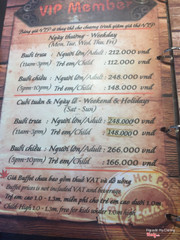 VIP Member
Ngày thường - Weekday
(Mon, Tue, Wed, Thu, Fri)
Buổi trưa : Người lớn/Adult : 212.000 vnđ
(11am-3pm) Trẻ em/Child : 112.000 vnđ
Buổi chiều : Người lớn/Adult : 248.000 vnđ
Trẻ em/Child : 148.000 vnđ
Cuối tuần & Ngày lễ - Weekend & Holidays
(Sat - Sun)
Buổi trưa : Người lớn/Adult : 248.000 vnđ
(11am-3pm) Trẻ em/Child : 148.000 vnđ
Buổi chiều : Người lớn/Adult : 266.000 vnđ
Trẻ em/Child : 166.000 vnđ
* Giá Buffet chưa bao gồm thuế VAT và đồ uống
Buffet prices is not included VAT and beverage
Trẻ em cao 1.0 - 1.3m, miễn phí cho trẻ em cao dưới 1.0m
Child High 1.0 - 1.3m, free for kids under 1.0m
Hot P